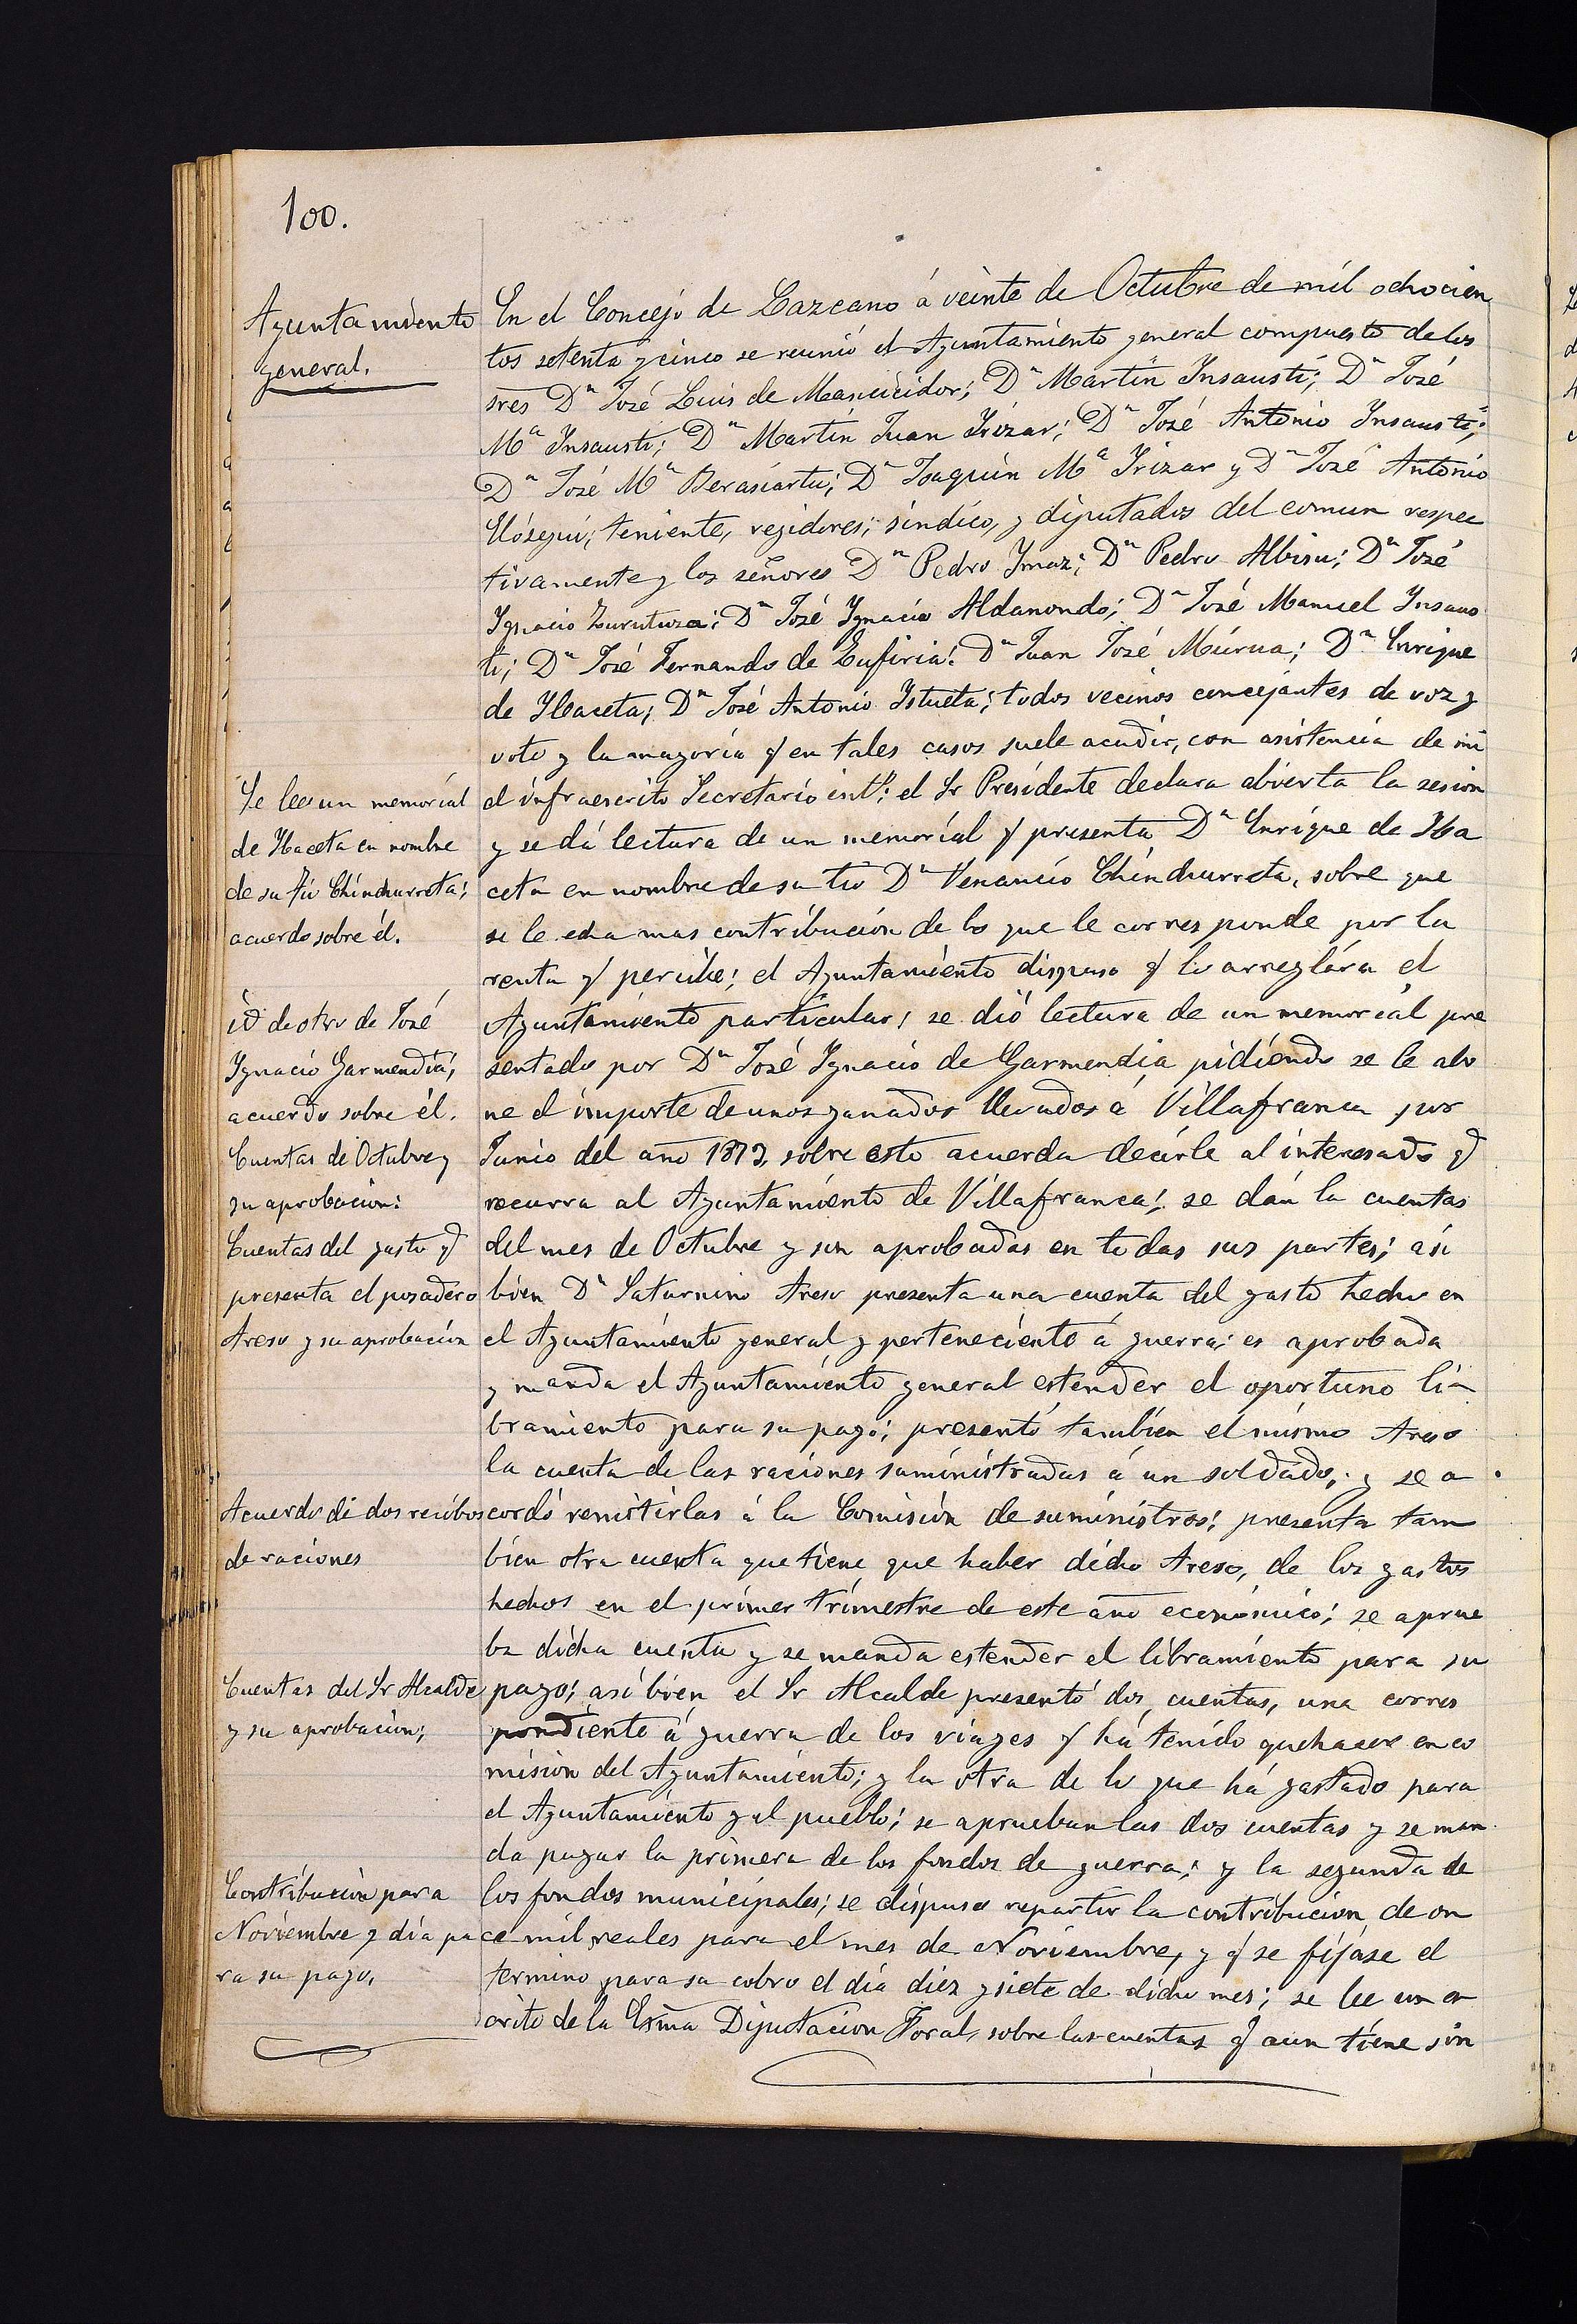 100.
Ayuntamiento
general.
En el Concejo de Lazcano á veinte de Octubre de mil ochocien
tos setenta y cinco se reunió el Ayuntamiento general compuesto de los
sres Dn José Luis de Mancicidor; Dn Martín Insausti; Dn José
Ma Insausti; Dn Martín Juan Irizar; Dn José Antonio Insausti;
Dn José Ma Berasiartu; Dn Joaquín Ma Irizar y Dn José Antonio
Elósegui; teniente, regidores; síndico, y diputados del comun respec
tivamente y los señores Dn Pedro Ymaz; Dn Pedro Albisu; Dn José
Ygnacio Zurutuza; Dn José Ygnacio Aldanondo; Dn José Manuel Insaus
ti; Dn José Fernando de Lufiria; Dn Juan José Múrua; Dn Enrique
de Ybaceta; Dn José Antonio Istueta; todos vecinos concejantes de voz y
voto y la mayoría q en tales casos suele acudir, con asistencia de mi
Se lee un memorial
de Ybaceta en nombre
de su tío Chinchurreta;
acuerdo sobre él.
el infraescrito Secretario intl; el Sr Presidente declara abierta la sesion
y se dá lectura de un memorial q presenta Dn Enrique de Iba
ceta en nombre de su tio Dn Venancio Chinchurreta, sobre que
se le echa mas contribución de lo que le corresponde por la
renta q percibe; el Ayuntamiento dispuso q lo arreglára el
id de otro de José
Ygnacio Garmendia;
acuerdo sobre él.
Ayuntamiento particular; se dió lectura de un memorial pre
sentado por Dn José Ygnacio de Garmendia pidiendo se le abo
ne el importe de unos ganados llevados á Villafranca por
Cuentas de Octubre y
su aprobacion:
Junio del año 1873, sobre esto acuerda decirle al interesado q
recurra al Ayuntamiento de Villafranca; se dán la cuentas
Cuentas del gasto q
presenta el posadero
Areso y su aprobacion
del mes de Octubre y son aprobadas en todas sus partes; así
bien Dn Saturnino Areso presenta una cuenta del gasto hecho en
el Ayuntamiento general y perteneciente á guerra; es aprobada
y manda el Ayuntamiento general estender el oportuno li
bramiento para su pago; presentó tambien el mismo Areso
la cuenta de las raciones suministradas á un soldado, y se a
Acuerdo di dos recibos
de raciones
cordó remitirlas á la Comisión de suministros; presenta tam
bien otra cuenta que tiene que haber dicho Areso, de los gastos
hechos en el primer trimestre de este año económico; se aprue
ba dicha cuenta y se manda estender el libramiento para su
Cuentas del Sr Alcalde
y su aprobacion;
pago; asi bien el Sr Alcalde presentó dos cuentas, una corres
pondiente á guerra de los viages q há tenido que hacer en co
mision del Ayuntamiento; y la otra de lo que há gastado para
el Ayuntamiento y el pueblo; se aprueban las dos cuentas y se man
da pagar la primera de los fondos de guerra; y la segunda de
Contribucion para
Noviembre y dia pa
ra su pago.
los fondos municipales; se dispuso repartir la contribucion de on
ce mil reales para el mes de Noviembre, y q se fijase el
termino para su cobro el dia diez y siete de dicho mes; se lee un es
crito de la Exma Diputacion Foral, sobre las cuentas q aun tiene sin